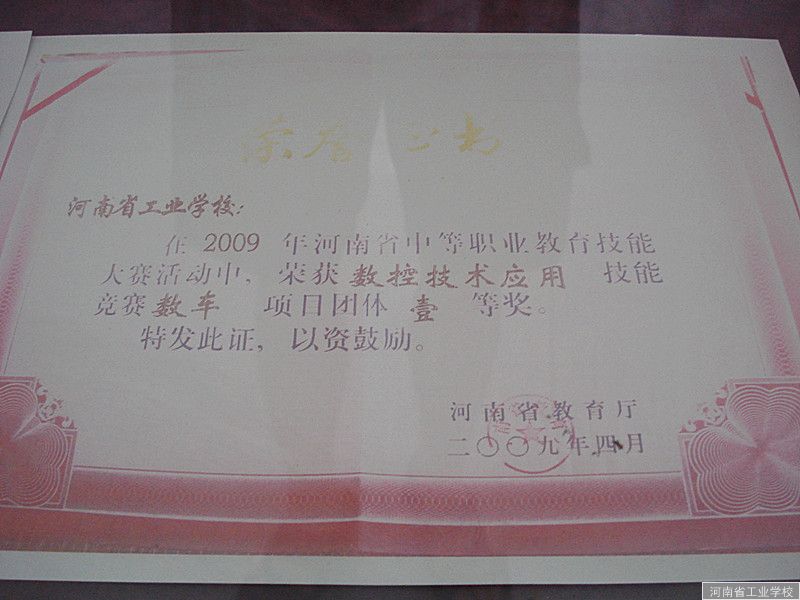 荣誉证书
河南省工业学校:
在 2009 年河南省中等职业教育技能
大赛活动中，荣获 数控技术应用 技能
竞赛 数车 项目团体 壹 等奖。
特发此证，以资鼓励。
河南省教育厅
二〇〇九年四月
河南省工业学校